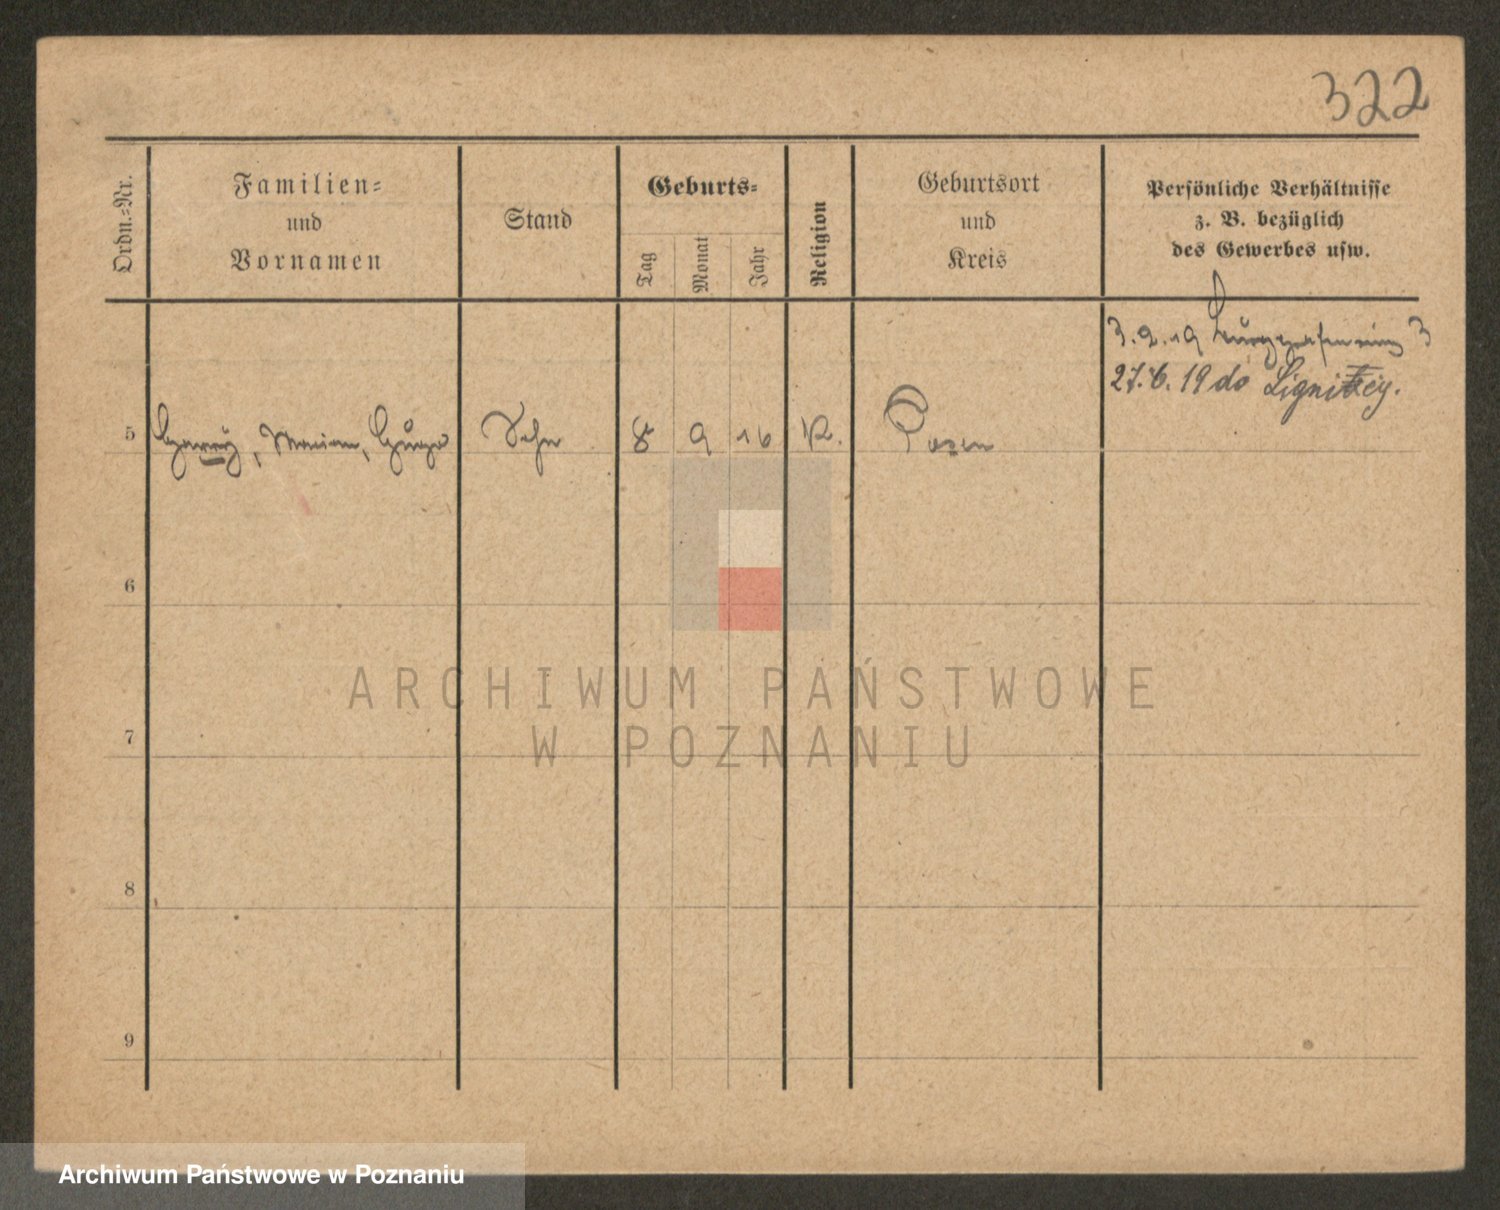 322
Ordn.=Nr.
Familien=
und
Vornamen
Stand
Geburts=
Tag
Monat
Jahr
Religion
Geburtsort
und
Kreis
Persönliche Verhältnisse
z. B. bezüglich
des Gewerbes usw.
3.2.19 3
27.6.19 do
5 Marian, Hugo Sohn 8 9 16 K. Posen
6
7
8
9
ARCHIWUM PAŃSTWOWE
W POZNANIU
Archiwum Państwowe w Poznaniu